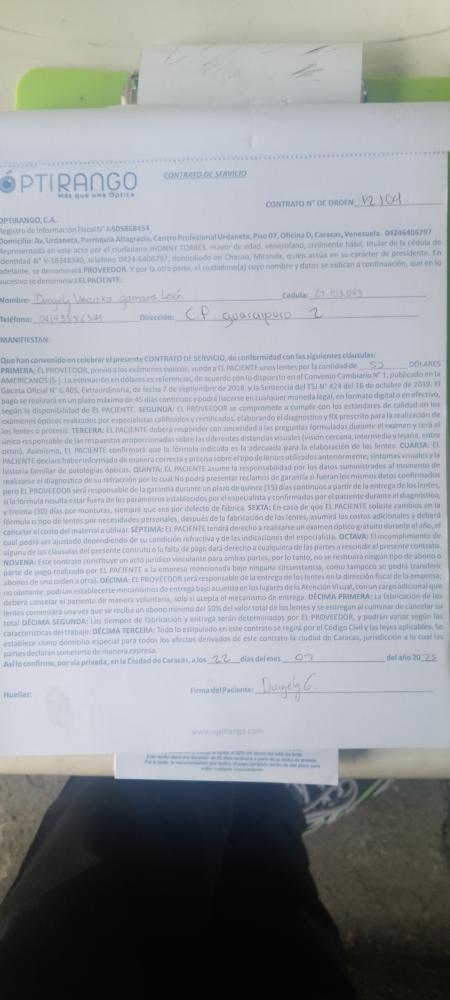 OPTIRANGO
Más que una Óptica
CONTRATO DE SERVICIO
CONTRATO N° DE ORDEN 12104
OPTIRANGO, C.A.
Registro de Información Fiscal N° J-505868454
Domicilio: Av. Urdaneta, Parroquia Altagracia, Centro Profesional Urdaneta, Piso 07, Oficina D, Caracas, Venezuela. 04246406797
Representada en este acto por el ciudadano JHONNY TORRES, mayor de edad, venezolano, civilmente hábil, titular de la cédula de
identidad N° V-18348340, teléfono 0424-6406797, domiciliado en Chacao, Miranda, quien actúa en su carácter de presidente. En
adelante, se denominará PROVEEDOR. Y por la otra parte, el ciudadano(a) cuyo nombre y datos se indican a continuación, que en lo
sucesivo se denominará EL PACIENTE:
Nombre: León Cédula:
Teléfono: Dirección: CP guaicaipuro 2
MANIFIESTAN:
Que han convenido en celebrar el presente CONTRATO DE SERVICIO, de conformidad con las siguientes cláusulas:
PRIMERA: EL PROVEEDOR, previo a los exámenes ópticos, vende a EL PACIENTE unos lentes por la cantidad de 55 DÓLARES
AMERICANOS ($-). La estimación en dólares es referencial, de acuerdo con lo dispuesto en el Convenio Cambiario N° 1, publicado en la
Gaceta Oficial N° 6.405, Extraordinaria, de fecha 7 de septiembre de 2018, y la Sentencia del TSJ N° 424 del 16 de octubre de 2019. El
pago se realizará en un plazo máximo de 45 días continuos y podrá hacerse en cualquier moneda legal, en formato digital o en efectivo,
según la disponibilidad de EL PACIENTE. SEGUNDA: EL PROVEEDOR se compromete a cumplir con los estándares de calidad en los
exámenes ópticos realizados por especialistas calificados y certificados, elaborando el diagnóstico y RX prescrito para la realización de
los lentes o prótesis. TERCERA: EL PACIENTE deberá responder con sinceridad a las preguntas formuladas durante el examen y será el
único responsable de las respuestas proporcionadas sobre las diferentes distancias visuales (visión cercana, intermedia y lejana, entre
otras). Asimismo, EL PACIENTE confirmará que la fórmula indicada es la adecuada para la elaboración de los lentes. CUARTA: EL
PACIENTE declara haber informado de manera correcta y precisa sobre el tipo de lentes utilizados anteriormente, síntomas visuales y la
historia familiar de patologías ópticas. QUINTA: EL PACIENTE asume la responsabilidad por los datos suministrados al momento de
realizarse el diagnóstico de su refracción por lo cual No podrá presentar reclamos de garantía si fueran los mismos datos confirmados
pero EL PROVEEDOR será responsable de la garantía durante un plazo de quince (15) días continuos a partir de la entrega de los lentes,
si la fórmula resulta estar fuera de los parámetros establecidos por el especialista y confirmados por el paciente durante el diagnóstico,
y treinta (30) días por monturas, siempre que sea por defecto de fábrica. SEXTA: En caso de que EL PACIENTE solicite cambios en la
fórmula o tipo de lentes por necesidades personales, después de la fabricación de los lentes, asumirá los costos adicionales y deberá
cancelar el costo del material a utilizar. SÉPTIMA: EL PACIENTE tendrá derecho a realizarse un examen óptico gratuito durante el año, el
cual podrá ser ajustado dependiendo de su condición refractiva y de las indicaciones del especialista. OCTAVA: El incumplimiento de
alguna de las cláusulas del presente contrato o la falta de pago dará derecho a cualquiera de las partes a rescindir el presente contrato.
NOVENA: Este contrato constituye un acto jurídico vinculante para ambas partes, por lo tanto, no se restituirá ningún tipo de abono o
parte de pago realizado por EL PACIENTE a la empresa mencionada bajo ninguna circunstancia, como tampoco se podrá transferir
abonos de una orden a otra). DÉCIMA: EL PROVEEDOR será responsable de la entrega de los lentes en la dirección fiscal de la empresa;
no obstante, podrían establecerse mecanismos de entrega bajo acuerdo en los lugares de la Atención Visual, con un cargo adicional que
deberá cancelar el paciente de manera voluntaria, solo si acepta el mecanismo de entrega. DÉCIMA PRIMERA: La fabricación de los
lentes comenzará una vez que se reciba un abono mínimo del 50% del valor total de los lentes y se entregan al culminar de cancelar su
total DÉCIMA SEGUNDA: Los tiempos de fabricación y entrega serán determinados por EL PROVEEDOR, y podrán variar según las
características del trabajo. DÉCIMA TERCERA: Todo lo estipulado en este contrato se regirá por el Código Civil y las leyes aplicables. Se
establece como domicilio especial para todos los efectos derivados de este contrato la ciudad de Caracas, jurisdicción a la cual las
partes declaran someterse de manera expresa.
Así lo confirmo, por vía privada, en la Ciudad de Caracas, a los 22 días del mes 07 del año 2025
Huellas: Firma del Paciente: Dangely G.
www.optirango.com